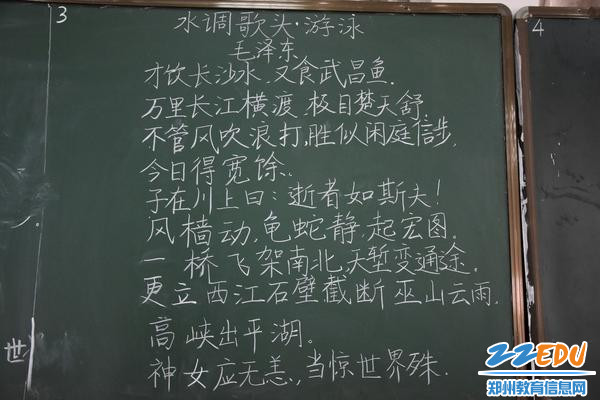 3
水调歌头·游泳
毛泽东
才饮长沙水.又食武昌鱼.
万里长江横渡,极目楚天舒.
不管风吹浪打,胜似闲庭信步,
今日得宽馀.
子在川上曰:逝者如斯夫!
风樯动,龟蛇静,起宏图.
一桥飞架南北,天堑变通途.
更立西江石壁截断巫山云雨.
高峡出平湖。
神女应无恙,当惊世界殊.
世
4
ZZEDU
郑州教育信息网